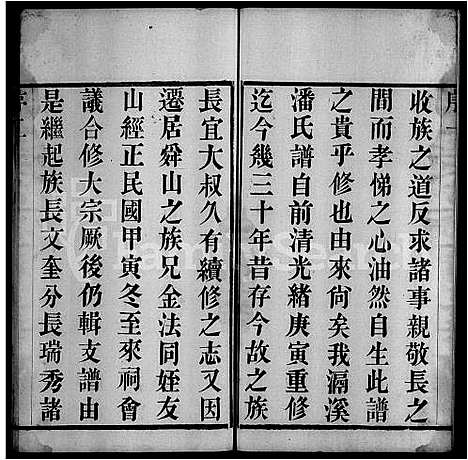 收族之道反求諸事親敬長之
間而孝悌之心油然自生此譜
之貴乎修也由來尙矣我漍溪
潘氏譜自前清光緒庚寅重修
迄今幾三十年昔存今故之族
長宜大叔久有續修之志又因
遷居舜山之族兄金法同姪友
山經正民國甲寅冬至來祠會
議合修大宗厥後仍輯支譜由
是繼起族長文奎分長瑞秀諸